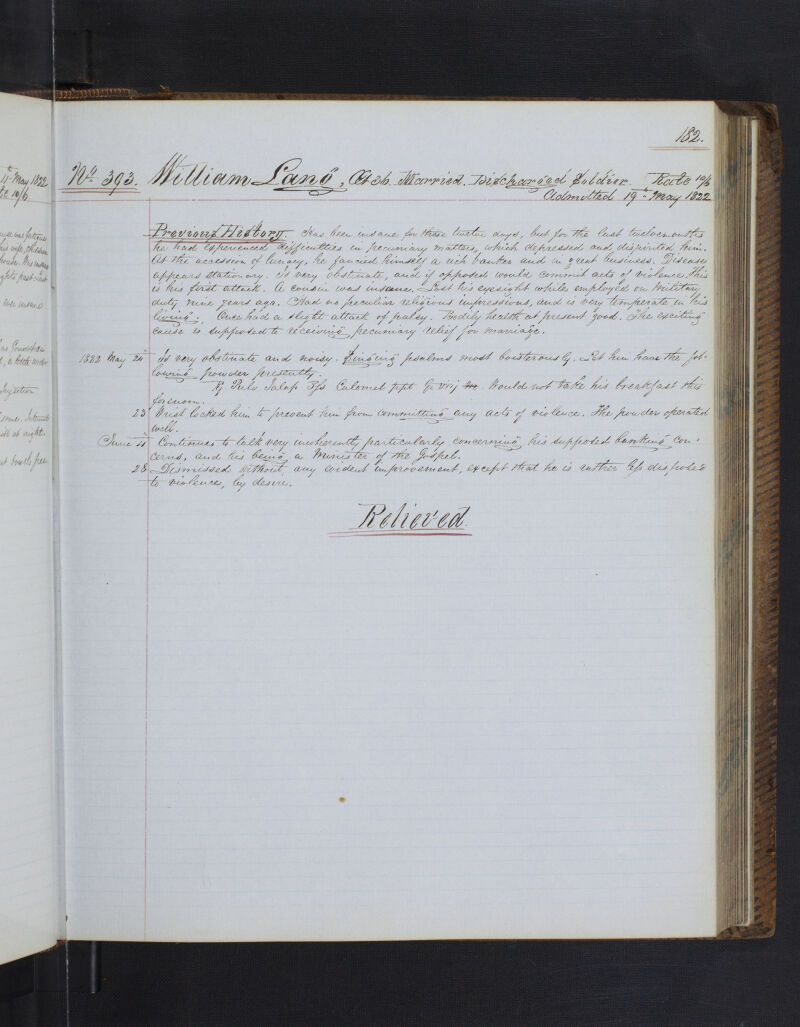 182.
No. 393. William Lang, Æt 36. Married. Discharged Soldier. Rate 10/6
Admitted 19th May 1822
Previous History. Has been insane for these twelve days, but for the last twelvemonths
he had experienced difficulties in pecuniary matters, which depressed and dispirited him.
At the accession of lunacy, he fancied himself a rich banker and in great business. Disease
appears stationary. Is very obstinate, and if opposed would commit acts of violence, this
is his first attack. A cousin was insane. Lost his eyesight while employed on Military
duty nine years ago. Had no peculiar religious impressions, and is very temperate in his
living. Once had a slight attack of palsy. Bodily health at present good. The exciting
cause is supposed to receiving pecuniary relief for marriage.
1822 May 20 Is very obstinate and noisy. Singing psalms most boisterously. Let him have the fol-
lowing powder presently.
℞ Pulv Jalap ℈fs Calomel ppt Gr viij. Would not take his breakfast this
forenoon.
23 Wrist locked him to prevent him from committing any acts of violence. The powder operated
well.
June 4 Continues to talk very incoherently, particularly concerning his supposed banking con-
cerns, and his being a Minister of the Gospel.
28 Dismissed without any evident improvement, except that he is rather less disposed
to violence, by desire.
Relieved.
4th May 1822
10/6
his wife, children
insane
at night.
bowels free